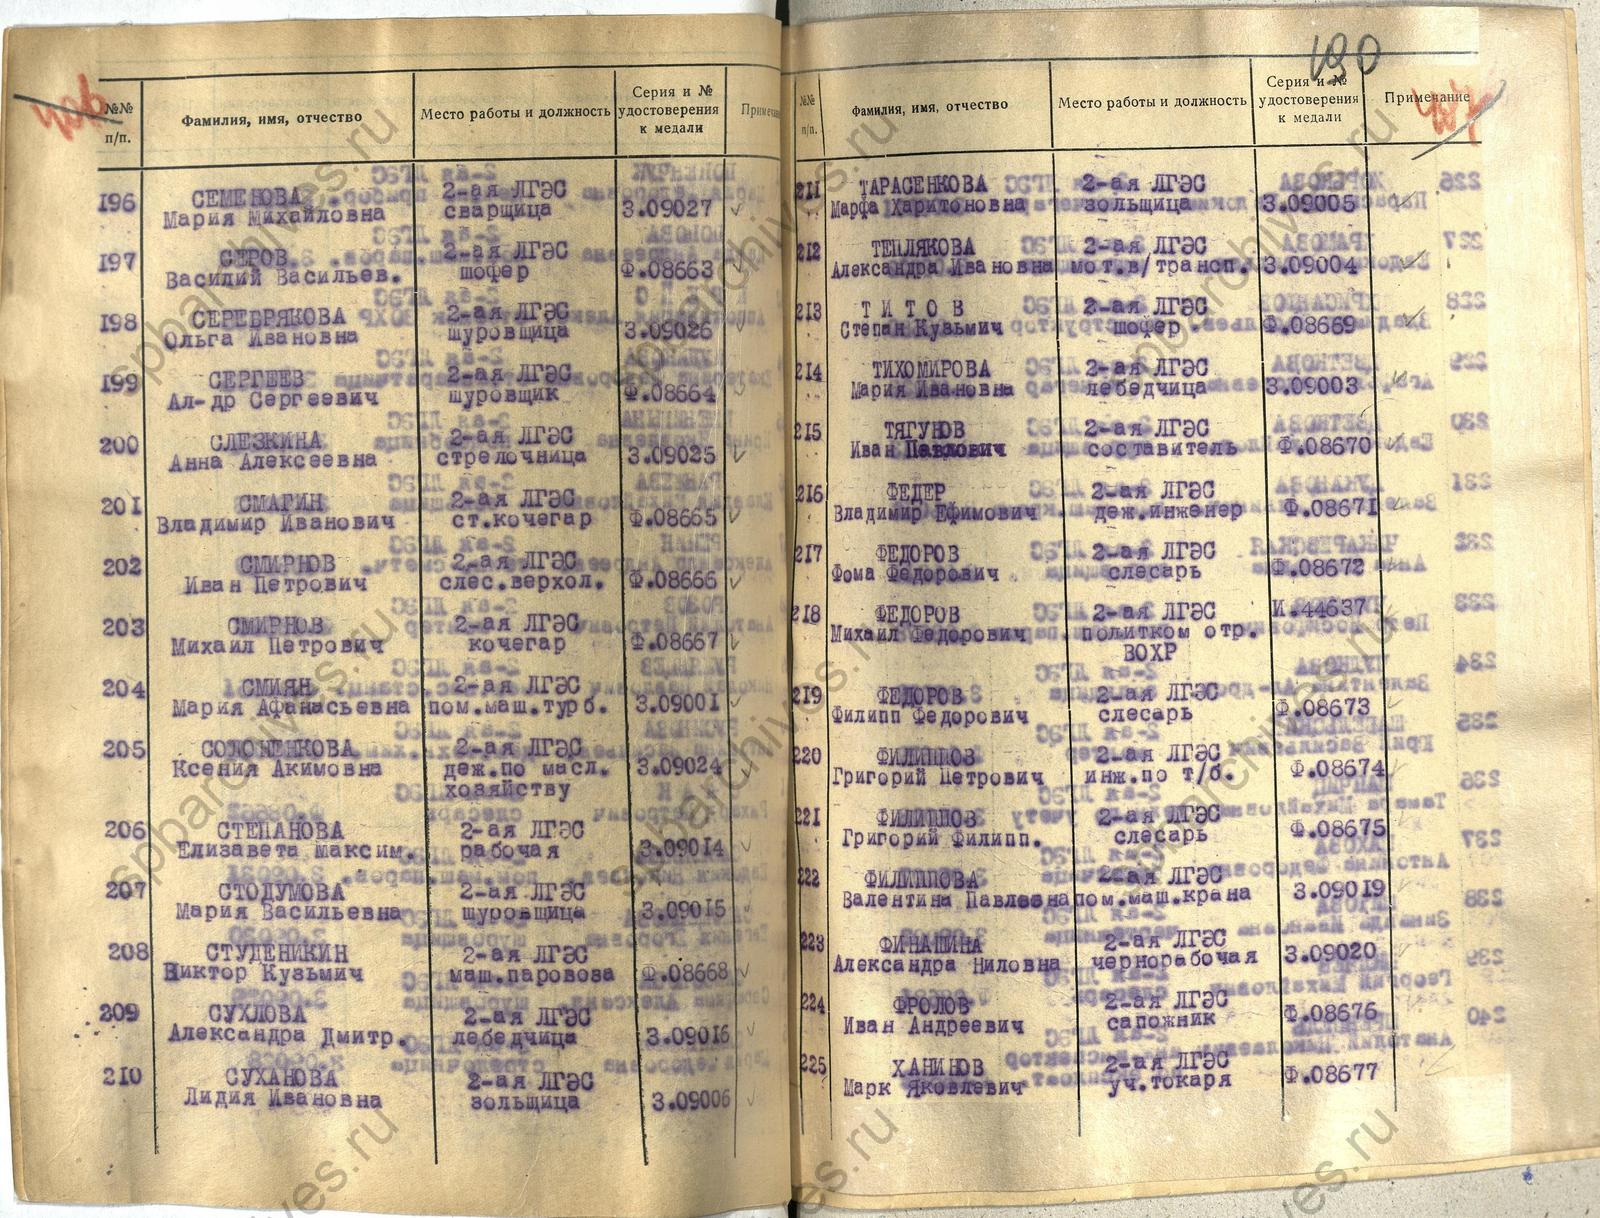 190
№№ п/п.
Фамилия, имя, отчество
Место работы и должность
Серия и № удостоверения к медали
196 СЕМЕНОВА 2-ая ЛГЭС
Мария Михайловна сварщица З.09027
197 СЕРОВ 2-ая ЛГЭС
Василий Васильев. шофер Ф.08663
198 СЕРЕБРЯКОВА 2-ая ЛГЭС
Ольга Ивановна шуровщица З.09026
199 СЕРГЕЕВ 2-ая ЛГЭС
Ал-др Сергеевич шуровщик Ф.08664
200 СЛЕЗКИНА 2-ая ЛГЭС
Анна Алексеевна стрелочница З.09025
201 СМАГИН 2-ая ЛГЭС
Владимир Иванович ст.кочегар Ф.08665
202 СМИРНОВ 2-ая ЛГЭС
Иван Петрович слес.верхол. Ф.08666
203 СМИРНОВ 2-ая ЛГЭС
Михаил Петрович кочегар Ф.08667
204 СМИЯН 2-ая ЛГЭС
Мария Афанасьевна пом.маш.турб. З.09001
205 СОЛОМЕНКОВА 2-ая ЛГЭС
Ксения Акимовна деж.по масл. З.09024
хозяйству
206 СТЕПАНОВА 2-ая ЛГЭС
Елизавета Максим. рабочая З.09014
207 СТОДУМОВА 2-ая ЛГЭС
Мария Васильевна шуровщица З.09015
208 СТУДЕНИКИН 2-ая ЛГЭС
Виктор Кузьмич маш.паровоза Ф.08668
209 СУХЛОВА 2-ая ЛГЭС
Александра Дмитр. лебедчица З.09016
210 СУХАНОВА 2-ая ЛГЭС
Лидия Ивановна зольщица З.09006
№№ п/п.
Фамилия, имя, отчество
Место работы и должность
Серия и № удостоверения к медали
Примечание
211 ТАРАСЕНКОВА 2-ая ЛГЭС
Марфа Харитоновна зольщица З.09005
212 ТЕПЛЯКОВА 2-ая ЛГЭС
Александра Ивановна мот.в/трансп. З.09004
213 ТИТОВ 2-ая ЛГЭС
Степан Кузьмич шофер Ф.08669
214 ТИХОМИРОВА 2-ая ЛГЭС
Мария Ивановна лебедчица З.09003
215 ТЯГУНОВ 2-ая ЛГЭС
Иван Павлович составитель Ф.08670
216 ФЕДЕР 2-ая ЛГЭС
Владимир Ефимович деж.инженер Ф.08671
217 ФЕДОРОВ 2-ая ЛГЭС
Фома Федорович слесарь Ф.08672
218 ФЕДОРОВ 2-ая ЛГЭС И.44637
Михаил Федорович политком отр.
ВОХР
219 ФЕДОРОВ 2-ая ЛГЭС
Филипп Федорович слесарь Ф.08673
220 ФИЛИППОВ 2-ая ЛГЭС
Григорий Петрович инж.по т/б. Ф.08674
221 ФИЛИППОВ 2-ая ЛГЭС
Григорий Филипп. слесарь Ф.08675
222 ФИЛИППОВА 2-ая ЛГЭС
Валентина Павловна пом.маш.крана З.09019
223 ФИНАШИНА 2-ая ЛГЭС
Александра Ниловна чернорабочая З.09020
224 ФРОЛОВ 2-ая ЛГЭС
Иван Андреевич сапожник Ф.08676
225 ХАНИНОВ 2-ая ЛГЭС
Марк Яковлевич уч.токаря Ф.08677
spbarchives.ru